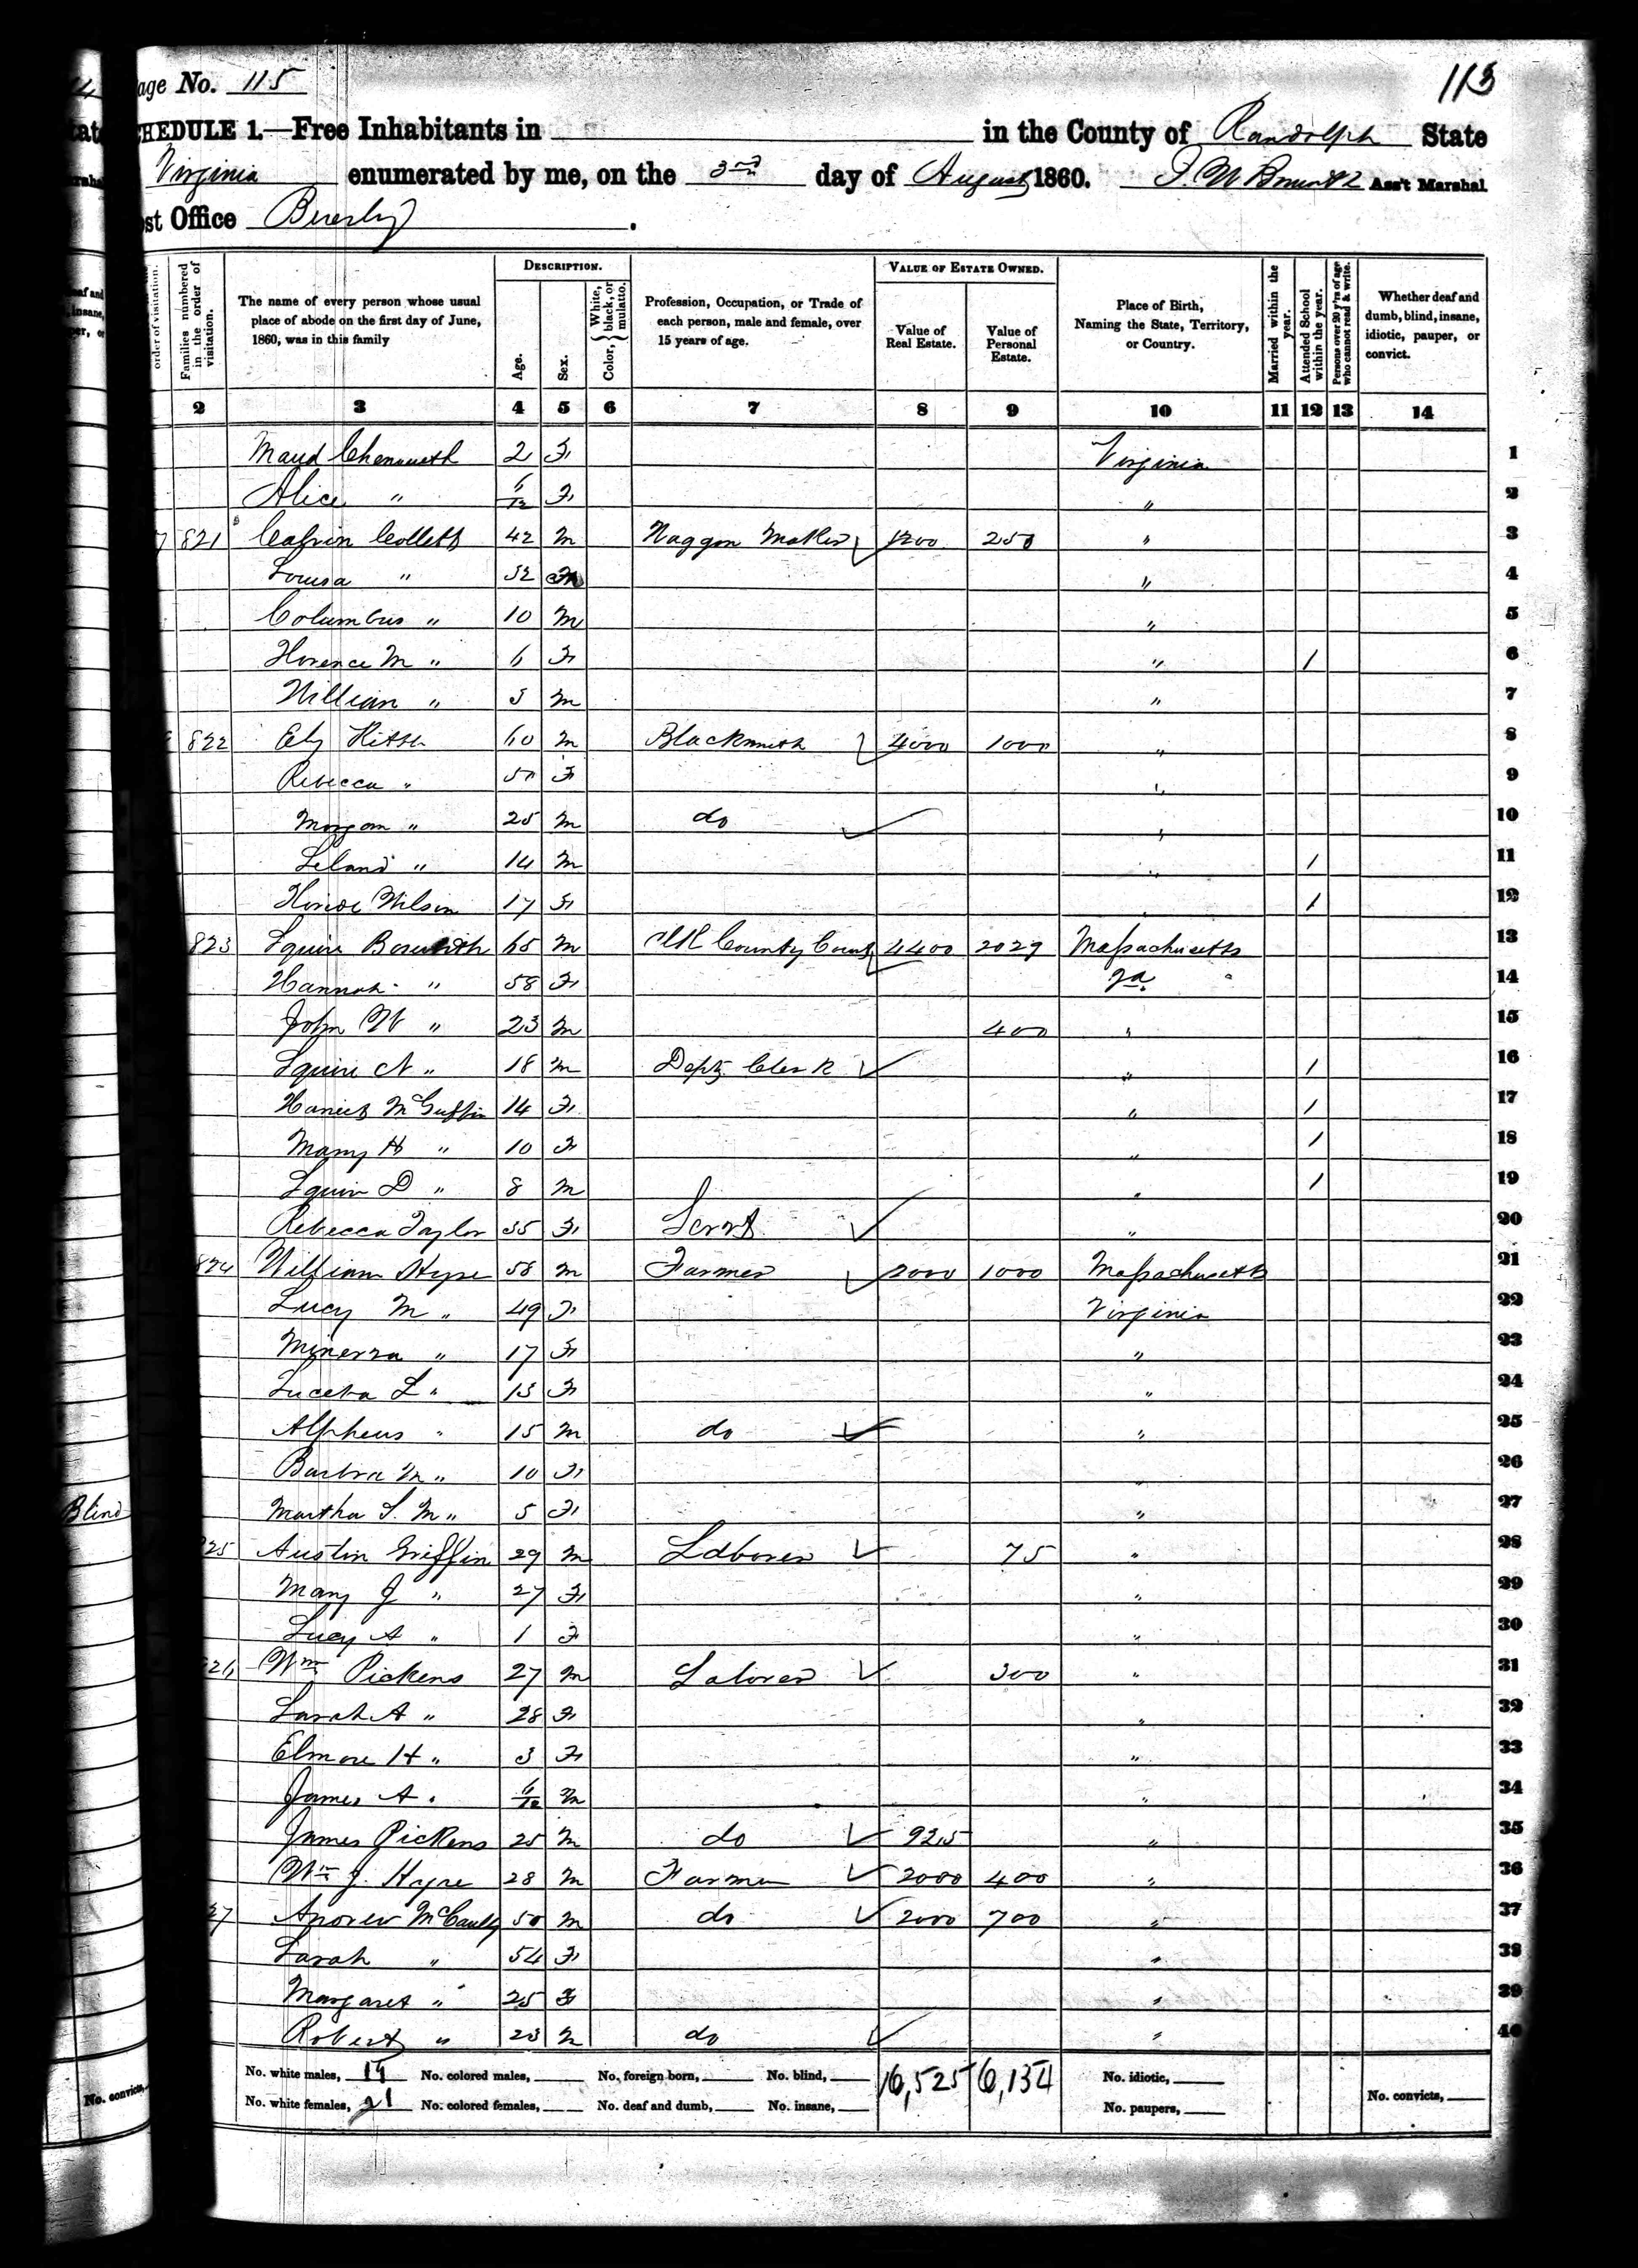 age No. 115
113
CHEDULE 1.—Free Inhabitants in in the County of Randolph State
Virginia enumerated by me, on the 3rd day of August 1860. Ass't Marshal
ost Office Beverly .
order of visitation.
Families numbered in the order of visitation.
The name of every person whose usual place of abode on the first day of June, 1860, was in this family
Description.
Age.
Sex.
Color, { White, black, or mulatto.
Profession, Occupation, or Trade of each person, male and female, over 15 years of age.
Value of Estate Owned.
Value of Real Estate.
Value of Personal Estate.
Place of Birth, Naming the State, Territory, or Country.
Married within the year.
Attended School within the year.
Persons over 20 y'rs of age who cannot read & write.
Whether deaf and dumb, blind, insane, idiotic, pauper, or convict.
2 3 4 5 6 7 8 9 10 11 12 13 14
Maud Chenoweth 2 F Virginia 1
Alice " F " 2
821 42 M Waggon Maker 1200 250 " 3
Louisa " 32 " 4
Columbus " 10 M " 5
Florence M " 6 F " / 6
William " 5 M " 7
822 Ely 60 M Blacksmith 4000 1000 " 8
Rebecca " 50 F " 9
Morgan " 25 M do " 10
Leland " 14 M " / 11
Wilson 17 F " / 12
823 Squire Bosworth 65 M Clk County Court 4400 2029 Massachusetts 13
Hannah " 58 F Va. 14
John W " 23 M 400 " 15
Squire N " 18 M Depty Clerk " / 16
Harriet McGuffin 14 F " / 17
Mary H " 10 F " / 18
Squire D " 8 M " / 19
Rebecca Taylor 35 F Servt " 20
824 William Hyre 58 M Farmer 2000 1000 Massachusetts 21
Lucy M " 49 F Virginia 22
Minerva " 17 F " 23
Luceba L " 13 F " 24
Alpheus " 15 M do " 25
Barbra M " 10 F " 26
Blind
Martha S. M " 5 F " 27
25 Austin Griffin 29 M Laborer 75 " 28
Mary J " 27 F " 29
Lucy A " 1 F " 30
26 Wm Pickens 27 M Laborer 300 " 31
Sarah A " 28 F " 32
Elmore H " 3 F " 33
James A " M " 34
James Pickens 25 M do 925 " 35
Wm J. Hyre 28 M Farmer 2000 400 " 36
27 Andrew McCaully 50 M do 2000 700 " 37
Sarah " 54 F " 38
Margaret " 25 F " 39
Robert " 23 M do " 40
No. white males, 19 No. colored males, No. foreign born, No. blind, 16,525 6,154 No. idiotic,
No. white females, 21 No. colored females, No. deaf and dumb, No. insane, No. paupers, No. convicts,
No. convicts,